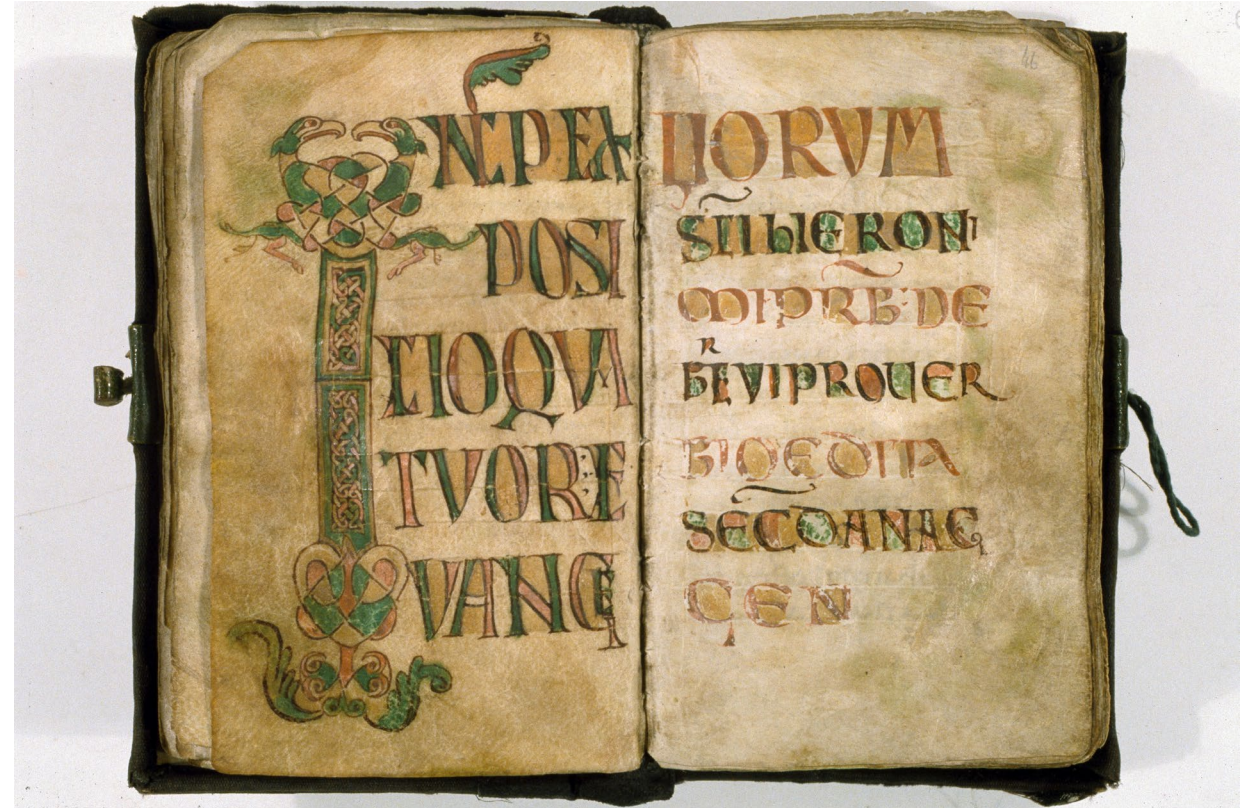 46
INCP EX
POSI
TIO QVA
TVOR E
VANGE
LIORVM
SCI HIERONI
MI PRB DE
BREVI PROVER
BIO EDITA
SECD ANAG
GEN